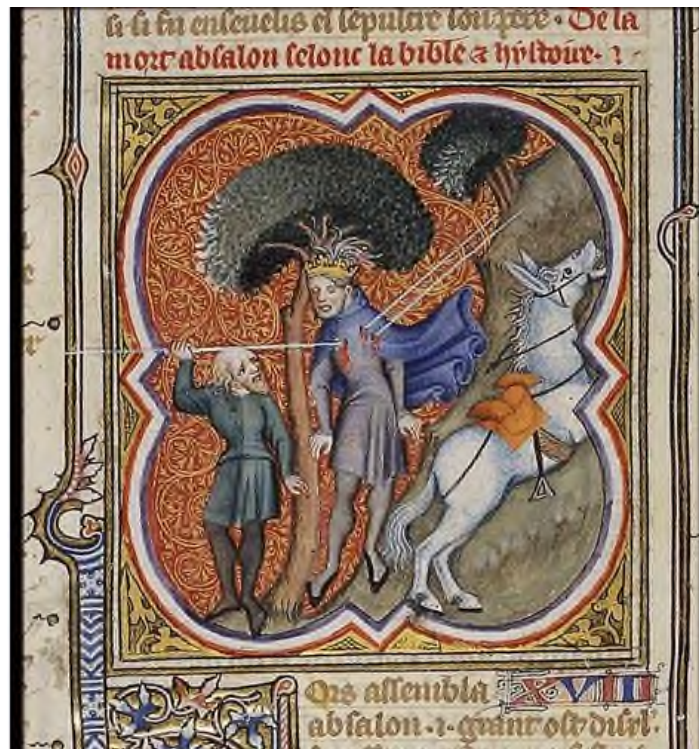 si fu ensevelis et sepultre son pere. De la
mort absalon selonc la bible & hystoire.
Ors assembla XVIII
absalon .i. grant ost disrl'.